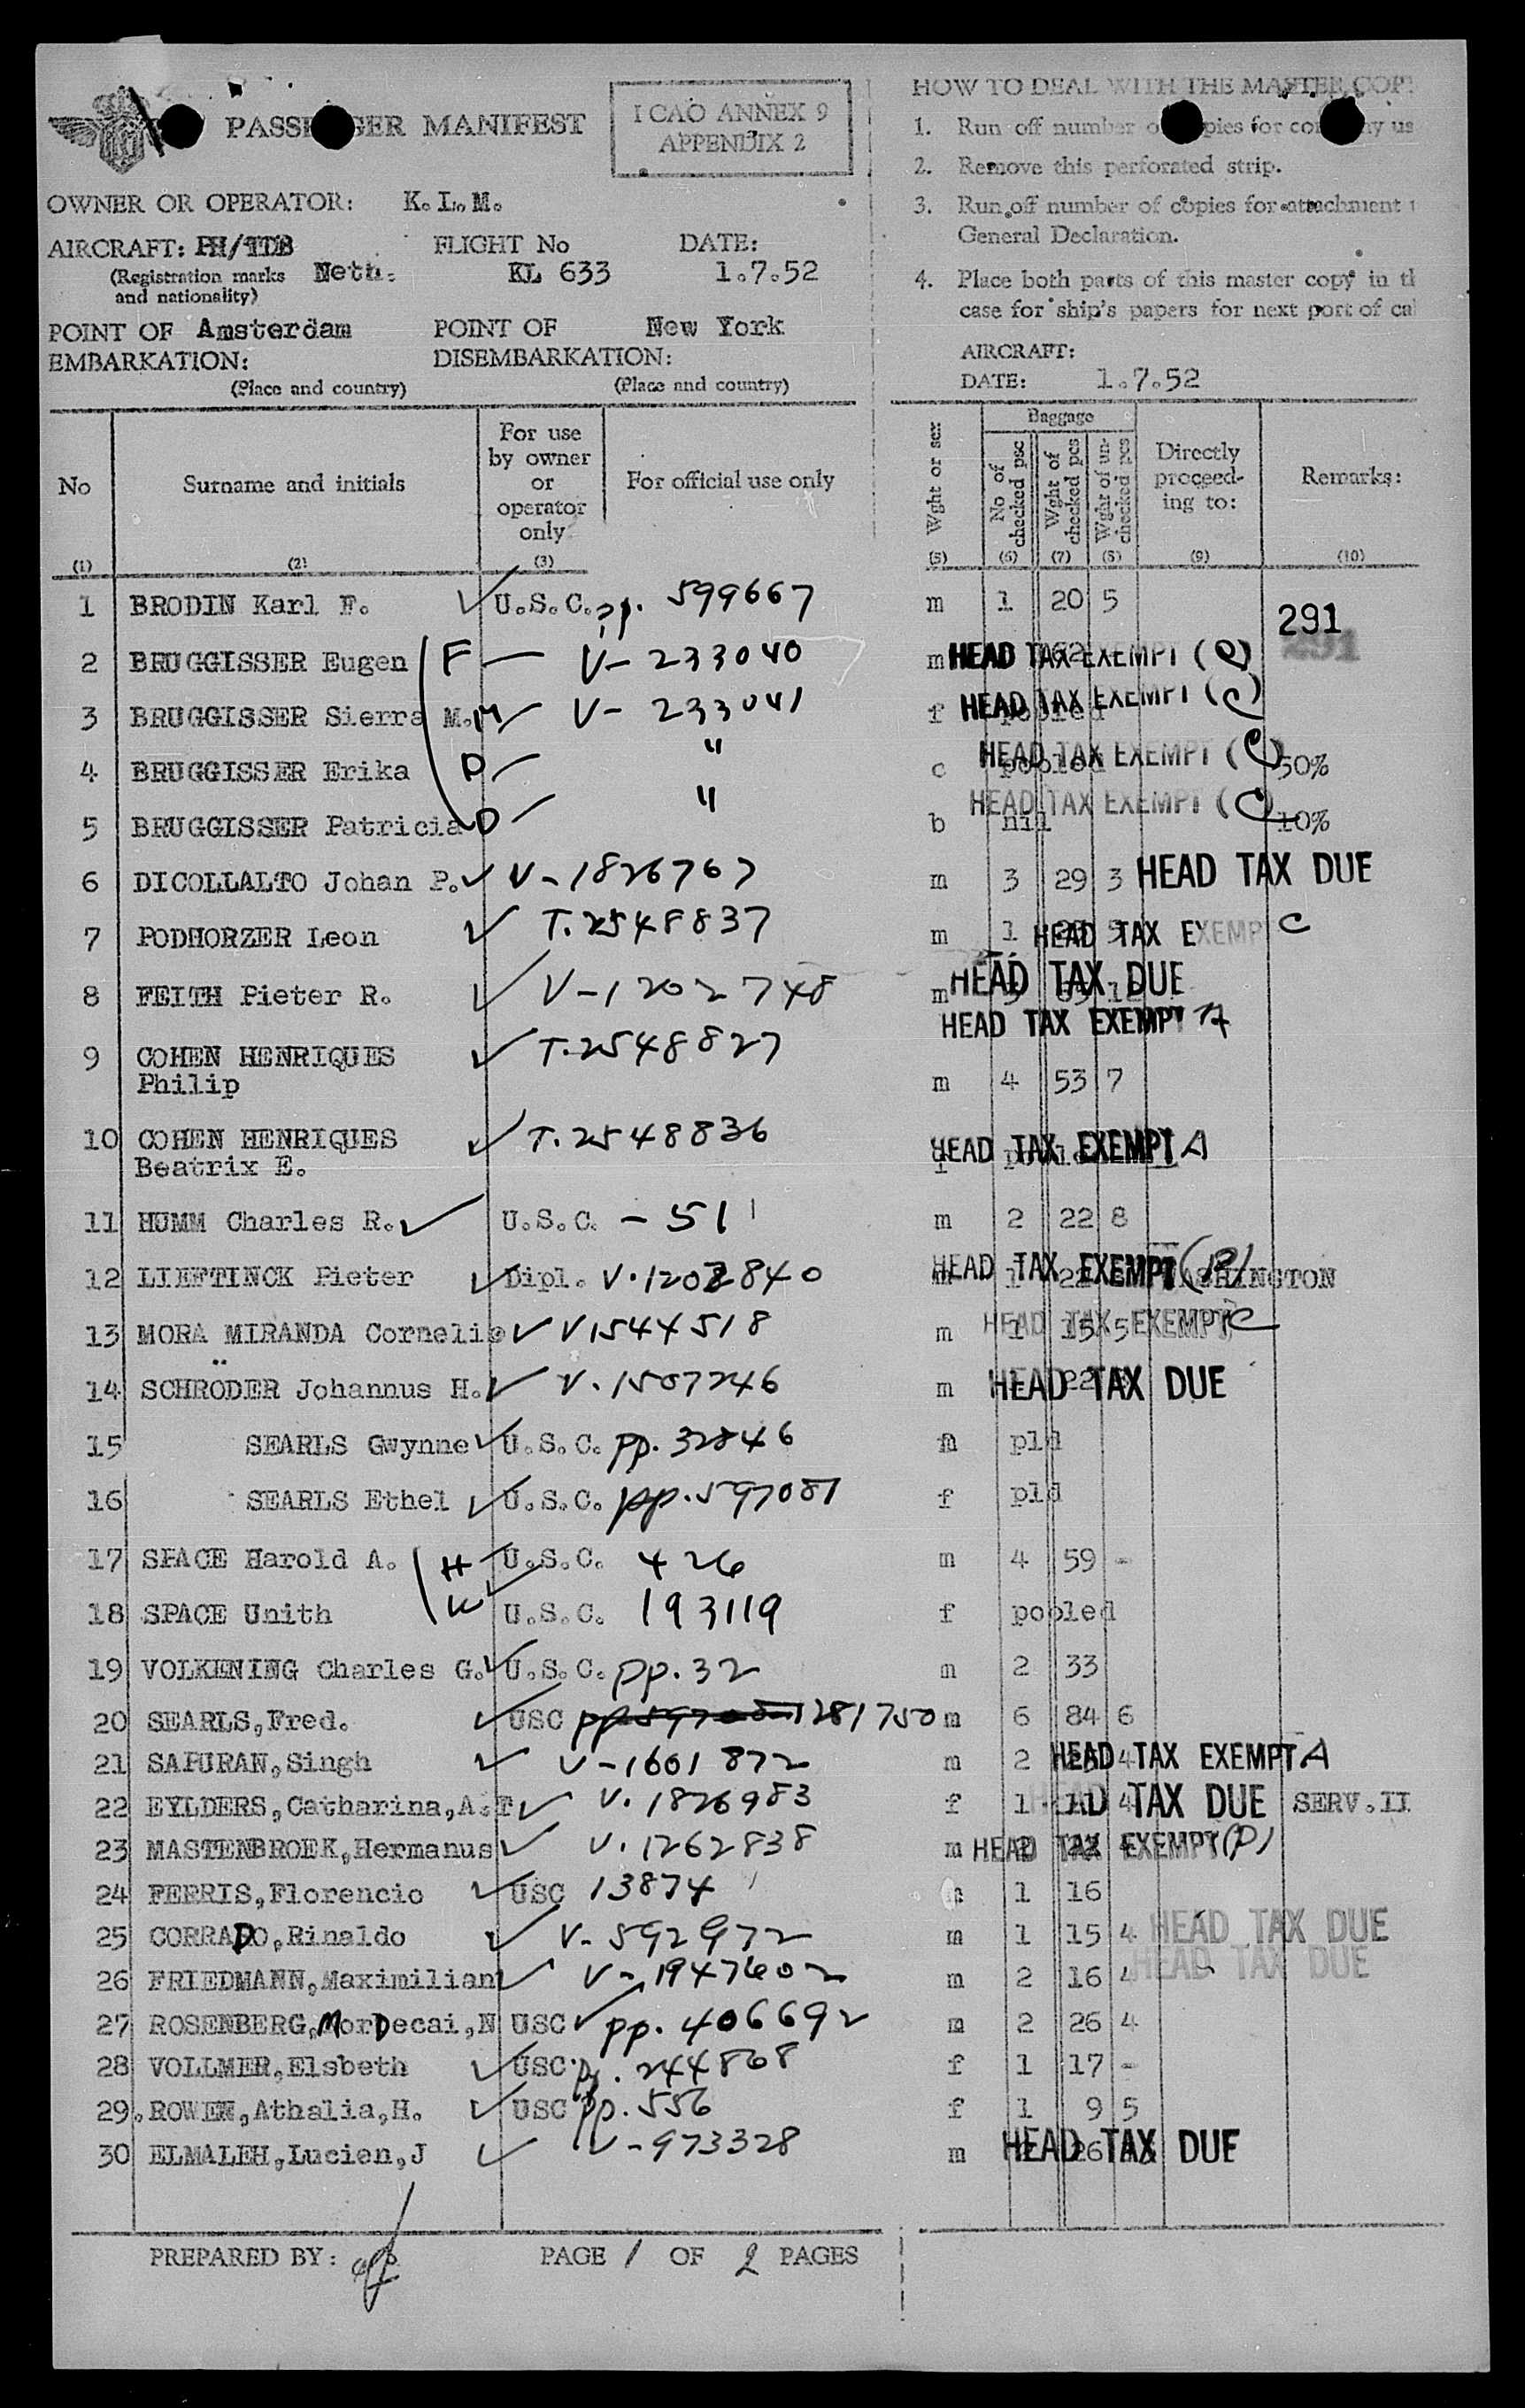 PASSENGER MANIFEST
ICAO ANNEX 9
APPENDIX 2
OWNER OR OPERATOR: K.L.M.
AIRCRAFT: PH/TDB FLIGHT No DATE:
(Registration marks Neth. KL 633 1.7.52
and nationality)
POINT OF Amsterdam POINT OF New York
EMBARKATION: DISEMBARKATION:
(Place and country) (Place and country)
HOW TO DEAL WITH THE MASTER COP
1. Run off number of copies for company us
2. Remove this perforated strip.
3. Run off number of copies for attachment t
General Declaration.
4. Place both parts of this master copy in th
case for ship's papers for next port of cal
AIRCRAFT:
DATE: 1.7.52
No Surname and initials For use by owner or operator only For official use only Wght or sex Baggage No of checked psc Wght of checked pcs Wght of un-checked pcs Directly proceed-ing to: Remarks:
(1) (2) (3) (5) (6) (7) (8) (9) (10)
1 BRODIN Karl F. U.S.C. pp. 599667 m 1 20 5
291
291
2 BRUGGISSER Eugen F V-233040 m HEAD TAX EXEMPT (C)
3 BRUGGISSER Sierra M. M V-233041 f pooled HEAD TAX EXEMPT (C)
4 BRUGGISSER Erika D " c pooled HEAD TAX EXEMPT (C) 50%
5 BRUGGISSER Patricia D " b nil HEAD TAX EXEMPT (C) 10%
6 DICOLLALTO Johan P. V-1826767 m 3 29 3 HEAD TAX DUE
7 PODHORZER Leon T.2548837 m 1 HEAD TAX EXEMP C
8 FEITH Pieter R. V-1202748 m HEAD TAX DUE
HEAD TAX EXEMPT A
9 COHEN HENRIQUES T.2548827
Philip m 4 53 7
10 COHEN HENRIQUES T.2548836 f pooled HEAD TAX EXEMPT A
Beatrix E.
11 HUMM Charles R. U.S.C. - 511 m 2 22 8
12 LIEFTINCK Pieter Dipl. V.1202840 m 1 22 HEAD TAX EXEMPT (P) WASHINGTON
13 MORA MIRANDA Cornelio V1544518 m 1 15 5 HEAD TAX EXEMPT C
14 SCHRÖDER Johannus H. V.1507246 m 22 HEAD TAX DUE
15 SEARLS Gwynne U.S.C. pp. 32846 m pld
16 SEARLS Ethel U.S.C. pp.597081 f pld
17 SPACE Harold A. H U.S.C. 426 m 4 59 -
18 SPACE Unith W U.S.C. 193119 f pooled
19 VOLKENING Charles G. U.S.C. pp.32 m 2 33
20 SEARLS,Fred. USC 1281750 m 6 84 6
21 SAPURAN,Singh V-1601872 m 2 4 HEAD TAX EXEMPT A
22 EYLDERS,Catharina,A.T V.1826983 f 1 11 4 HEAD TAX DUE SERV.II
23 MASTENBROEK,Hermanus V.1262838 m HEAD TAX EXEMPT (P)
24 FERRIS,Florencio USC 13874 1 16
25 CORRADO,Rinaldo V-592972 m 1 15 4 HEAD TAX DUE
26 FRIEDMANN,Maximilian V-1947602 m 2 16 4 HEAD TAX DUE
27 ROSENBERG,MorDecai,N USC pp.406692 m 2 26 4
28 VOLLMER,Elsbeth USC pp.244868 f 1 17 -
29. ROWEN,Athalia,H. USC pp.556 f 1 9 5
30 ELMALEH,Lucien,J V-973328 m 26 HEAD TAX DUE
PREPARED BY: PAGE 1 OF 2 PAGES